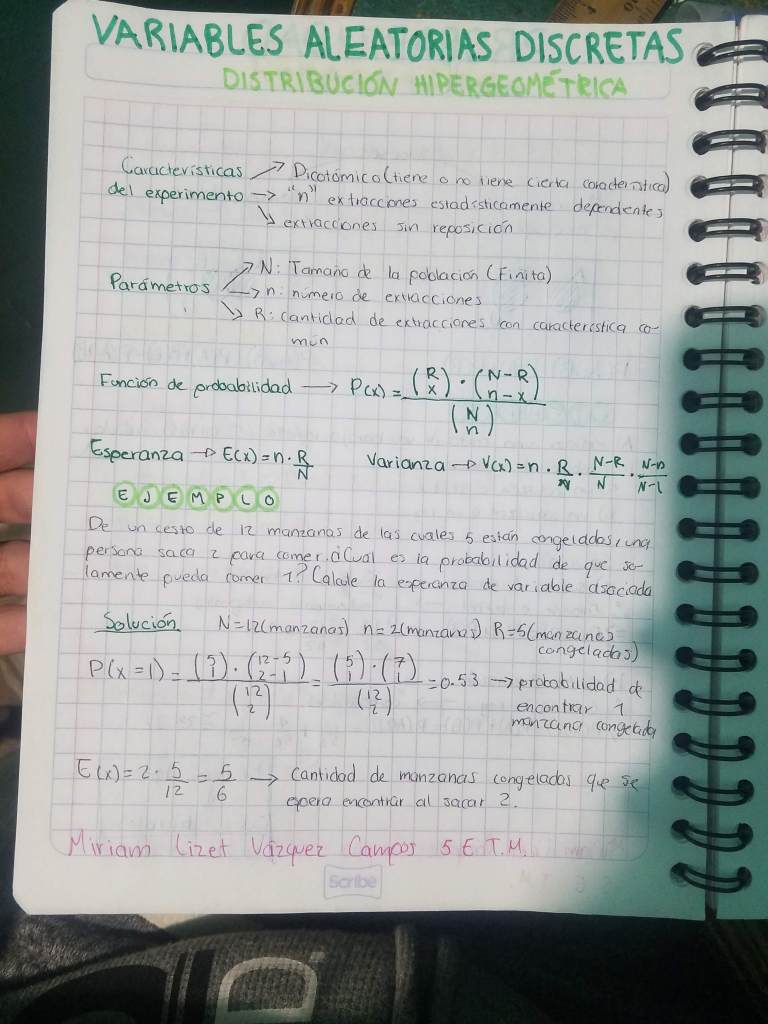 VARIABLES ALEATORIAS DISCRETAS
DISTRIBUCIÓN HIPERGEOMÉTRICA
Características → Dicotómico (tiene o no tiene cierta característica)
del experimento → "n" extracciones estadísticamente dependentes
↘ extracciones sin reposición
Parámetros ↗ N: Tamaño de la población (Finita)
→ n: número de extracciones
↘ R: cantidad de extracciones con característica co-
mún
Función de probabilidad → P(x) = (R x) · (N-R n-x) / (N n)
Esperanza → E(x) = n · R/N Varianza → V(x) = n · R/N · N-R/N · N-n/N-1
EJEMPLO
De un cesto de 12 manzanas de las cuales 5 están congeladas, una
persona saca 2 para comer. ¿Cual es la probabilidad de que so-
lamente pueda comer 1? Calcule la esperanza de variable asociada
Solución N=12(manzanas) n=2(manzanas) R=5(manzanas
congeladas)
P(x=1) = (5 1) · (12-5 2-1) / (12 2) = (5 1) · (7 1) / (12 2) = 0.53 → probabilidad de
encontrar 1
manzana congelada
E(x) = 2 · 5/12 = 5/6 → cantidad de manzanas congelados que se
epera encontrar al sacar 2.
Miriam Lizet Vázquez Campos 5 E T.M.
Scribe